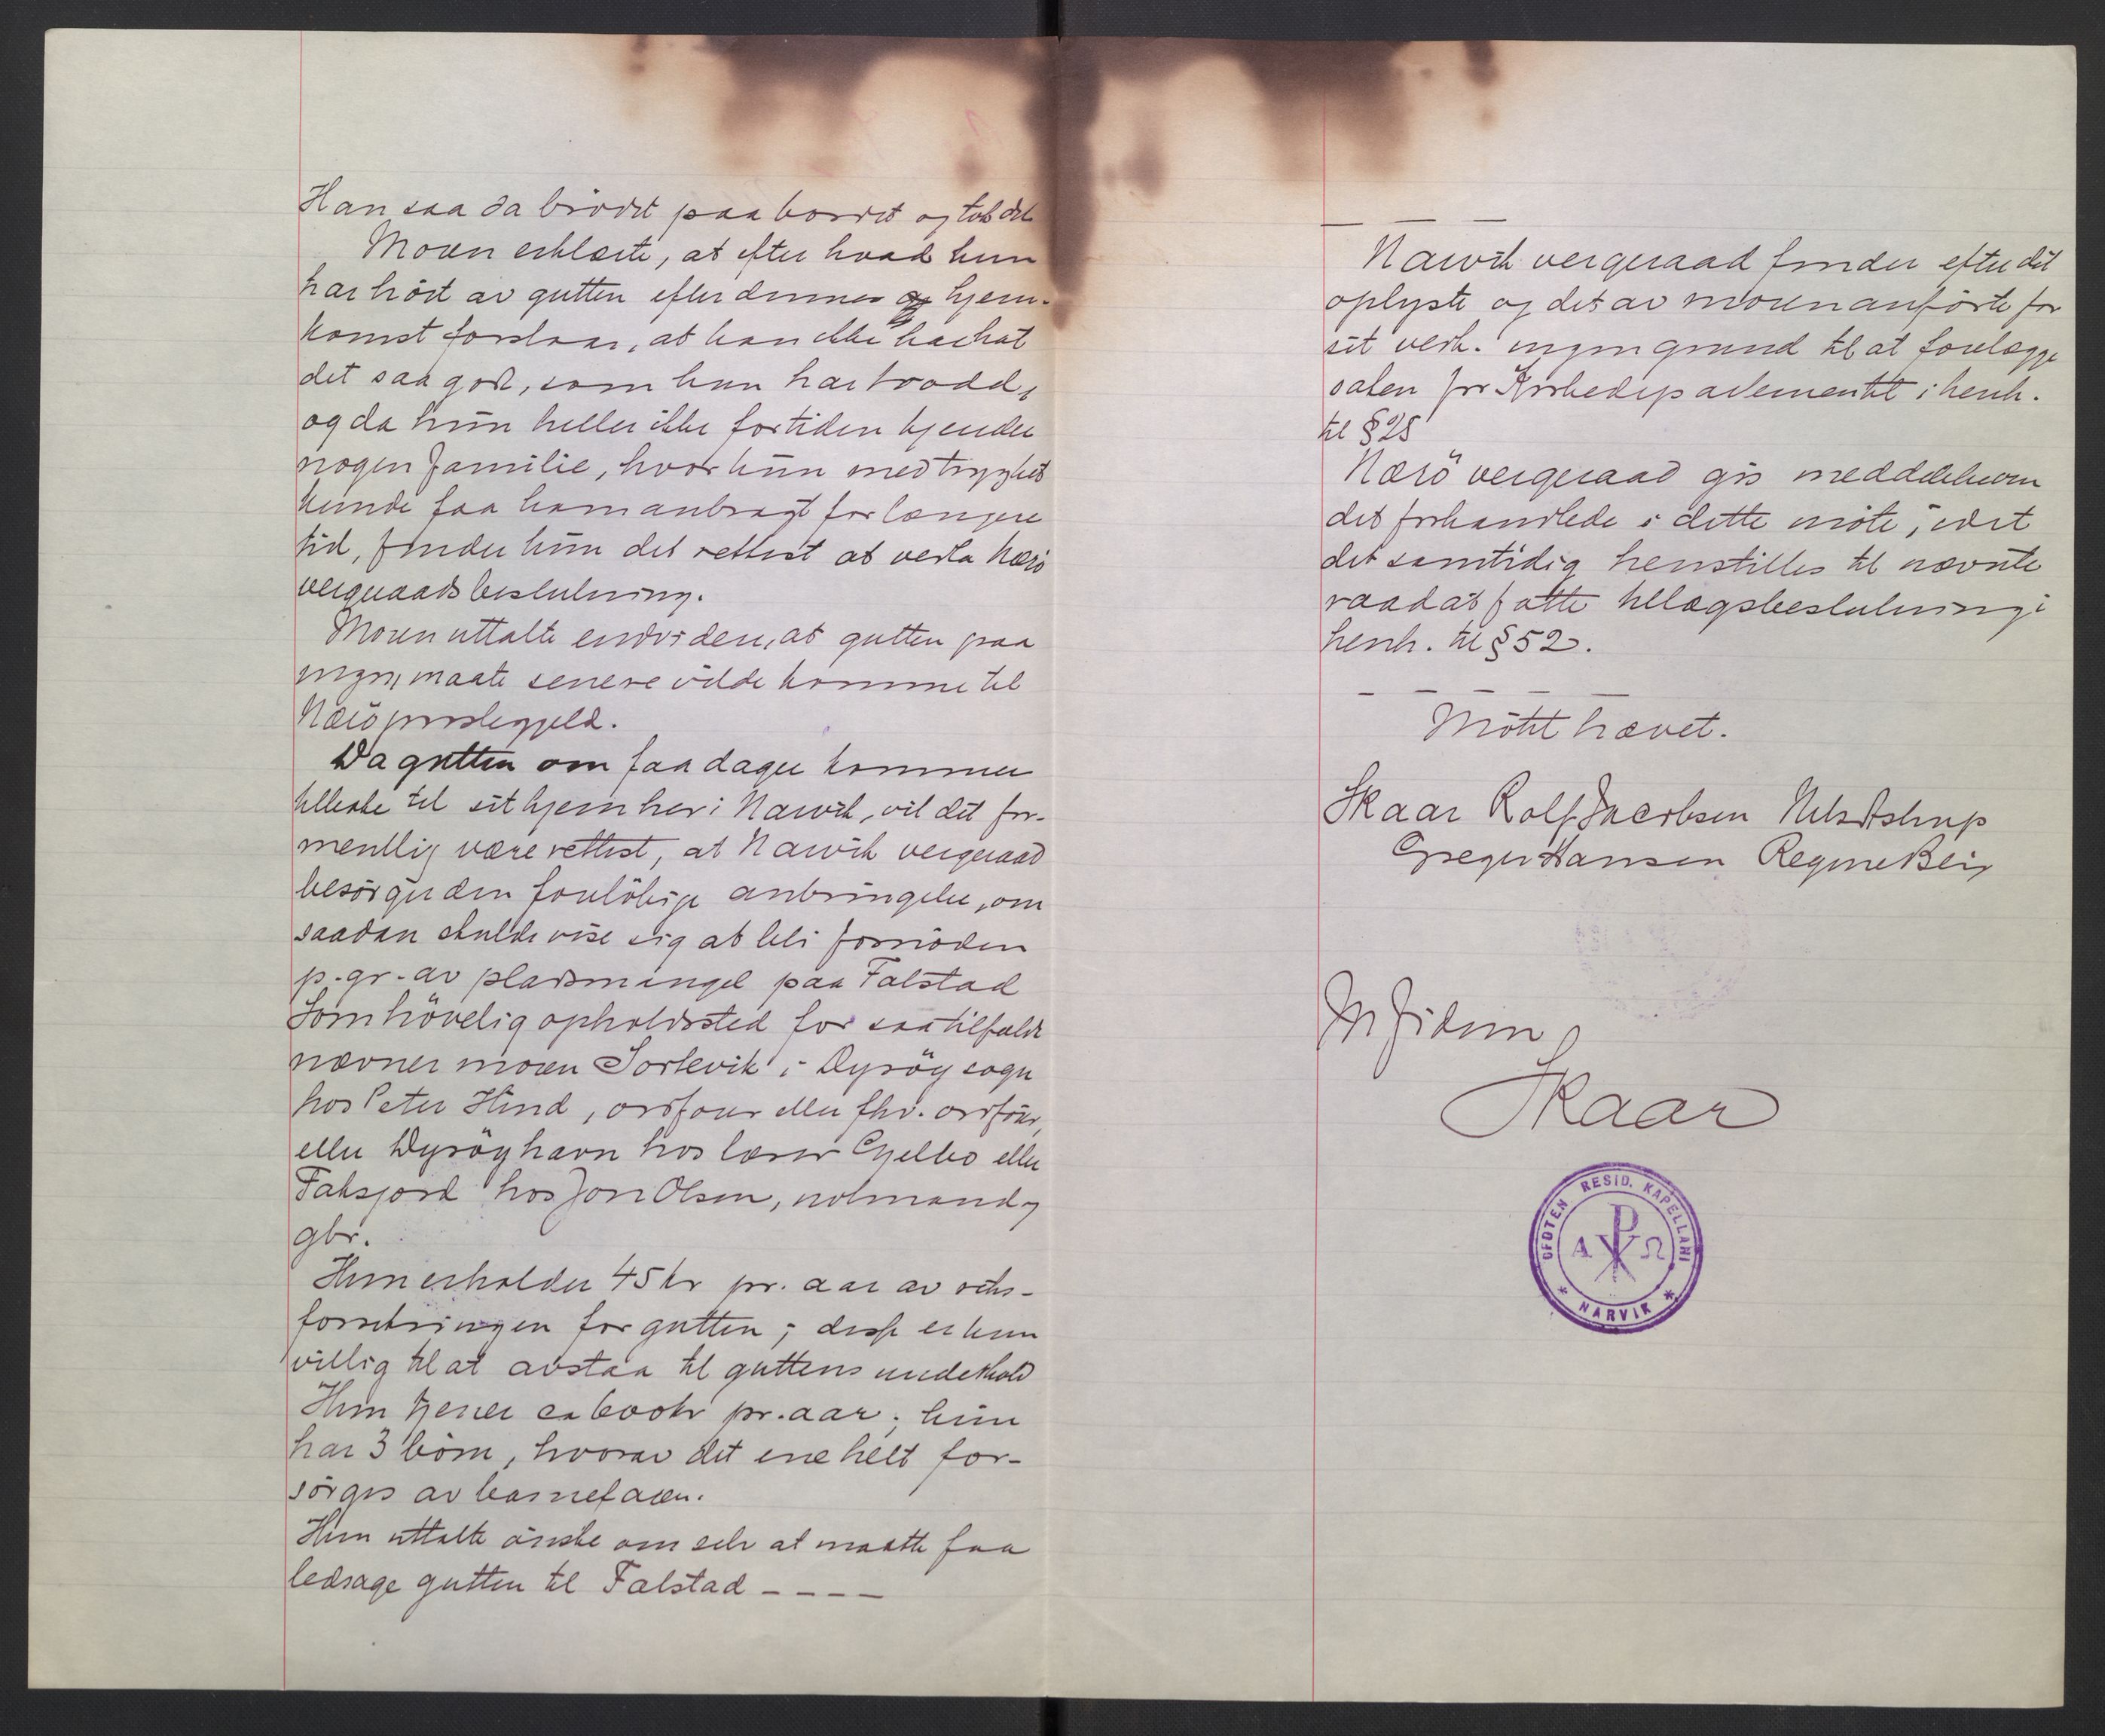 Han saa da brödet paa bordet og tok det
Moren erklærte, at efter hvad hun
har hört av gutten efter dennes hjem-
komst forstaar, at han ikke har hat
det saa godt, som hun har trodd,
og da hun heller ikke for tiden kjender
nogen familie, hvor hun med trygghet
kunde faa ham anbragt for længere
tid, finder hun det rettest at vedta Nærö
vergeraads beslutning.
Moren uttalte endvidere, at gutten paa
ingen maate senere vilde komme til
Nærö prestegjeld.
Da gutten om faa dager kommer
tilbake til sit hjem her i Narvik, vil det for-
mentlig være rettest, at Narvik vergeraad
besörger den forelöbige anbringelse, om
saadan skulde vise sig at bli fornöden
p.gr.av pladsmangel paa Falstad
Som hövelig opholdssted for saa tilfælde
nævner moren Sörlevik i Dyröy sogn
hos Peter Hind, ordförer eller fhv. ordförer,
eller Dyröyhavn hos lærer Gjelbo eller
Faksfjord hos Jon Olsen, notmand og
gbr.
Hun erholder 45 kr pr. aar av riks-
forsikringen for gutten; disse er hun
villig til at avstaa til guttens underhold
Hun tjener ca 600 kr pr. aar; hun
har 3 börn, hvorav det ene helt for-
sörges av barnefaren.
Hun uttalte önske om selv at maatte faa
ledsage gutten til Falstad – – – –
– – –
Narvik vergeraad finder efter det
oplyste og det av moren anförte for
sit vedk. ingen grund til at forelægge
saken for Kirkedepartementet i henh.
til § 25
Nærö vergeraad gis meddelelse om
det forhandlede i dette möte, idet
det samtidig henstilles til nævnte
raad at fatte tillægsbeslutning i
henh. til § 52.
– – – – –
Mötet hævet.
Skaar Rolf Jacobsen Nils Astrup
Greger Hansen Regine Beiy
In fidem
Skaar
OFOTEN RESID. KAPELLANI
A Ω
* NARVIK *